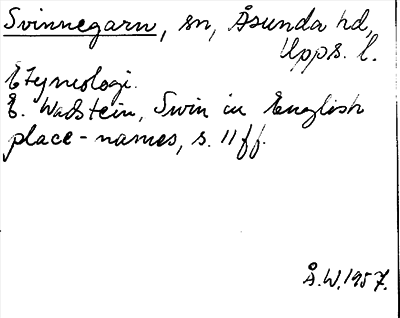 Svinnegarn, sn, Åsunda hd,
Upps. l.
Etymologi.
E. Wadstein, Swin in English
place-names, s. 11 ff.
Å.W. 1957.